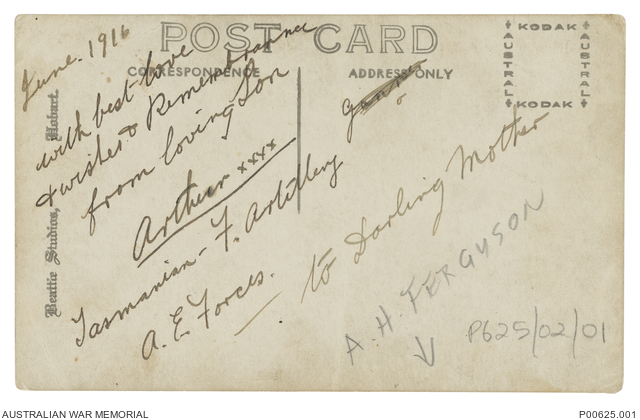 POST CARD
CORRESPONDENCE
ADDRESS ONLY
KODAK
AUSTRAL
AUSTRAL
KODAK
Beattie Studios, Hobart.
June. 1916
with best love
& wishes & Remembrance
from loving Son
Arthur xxxx
Tasmanian - F. Artillery
A. E. Forces.
to Darling Mother
A. H. FERGUSON
P625/02/01
AUSTRALIAN WAR MEMORIAL
P00625.001